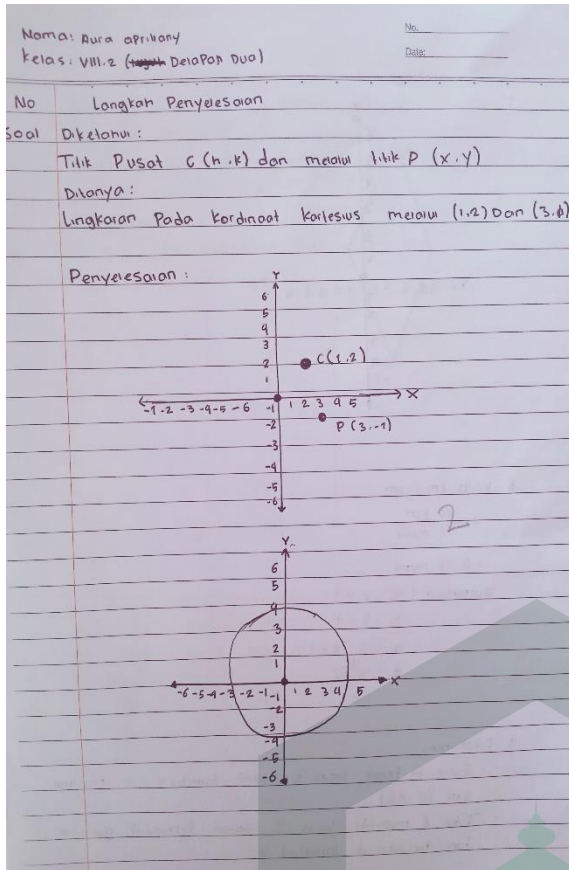 No.
Nama: Aura aprihany
Date:
Kelas: VIII.2 (Delapan Dua)
No Langkah Penyelesaian
Soal Diketahui :
Titik Pusat C (h.k) dan melalui titik P (x.y)
Ditanya :
Lingkaran Pada Kordinaat Kartesius melalui (1,2) Dan (3.
Penyelesaian :
Y
6
5
4
3
2 C(1.2)
1
-1 -2 -3 -4 -5 -6 -1 1 2 3 4 5 X
-2 P (3.-1)
-3
-4
-5
-6
2
Y
6
5
4
3
2
1
-6 -5 -4 -3 -2 -1 -1 1 2 3 4 5 X
-2
-3
-4
-5
-6